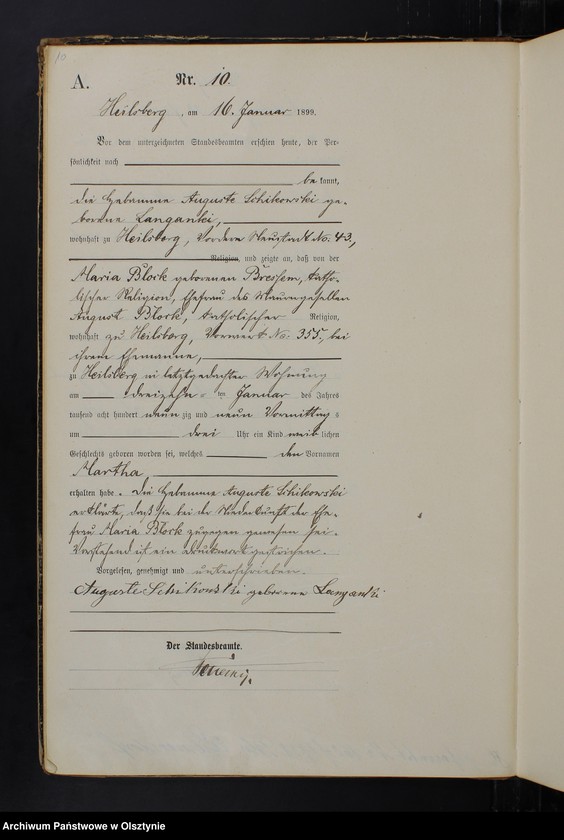 10
A.
Nr. 10.
Heilsberg, am 16. Januar 1899.
Vor dem unterzeichneten Standesbeamten erschien heute, der Per-
sönlichkeit nach
bekannt,
die Hebamme Auguste Schikowski ge-
borene Langanki,
wohnhaft zu Heilsberg, Vordere Neustadt No. 43,
Religion, und zeigte an, daß von der
Maria Block geborenen Bressem, katho-
lischer Religion, Ehefrau des Maurergesellen
August Block, katholischer Religion,
wohnhaft zu Heilsberg, Vorwerk No. 355, bei
ihrem Ehemanne,
zu Heilsberg in letztgedachter Wohnung
am dreizehnten Januar des Jahres
tausend acht hundert neunzig und neun Vormittags
um drei Uhr ein Kind weiblichen
Geschlechts geboren worden sei, welches den Vornamen
Martha
erhalten habe. Die Hebamme Auguste Schikowski
erklärte, daß sie bei der Niederkunft der Ehe-
frau Maria Block zugegen gewesen sei.
Vorstehend ist ein Druckwort gestrichen.
Vorgelesen, genehmigt und unterschrieben.
Auguste Schikowski geborene Langanki
Der Standesbeamte.
Archiwum Państwowe w Olsztynie